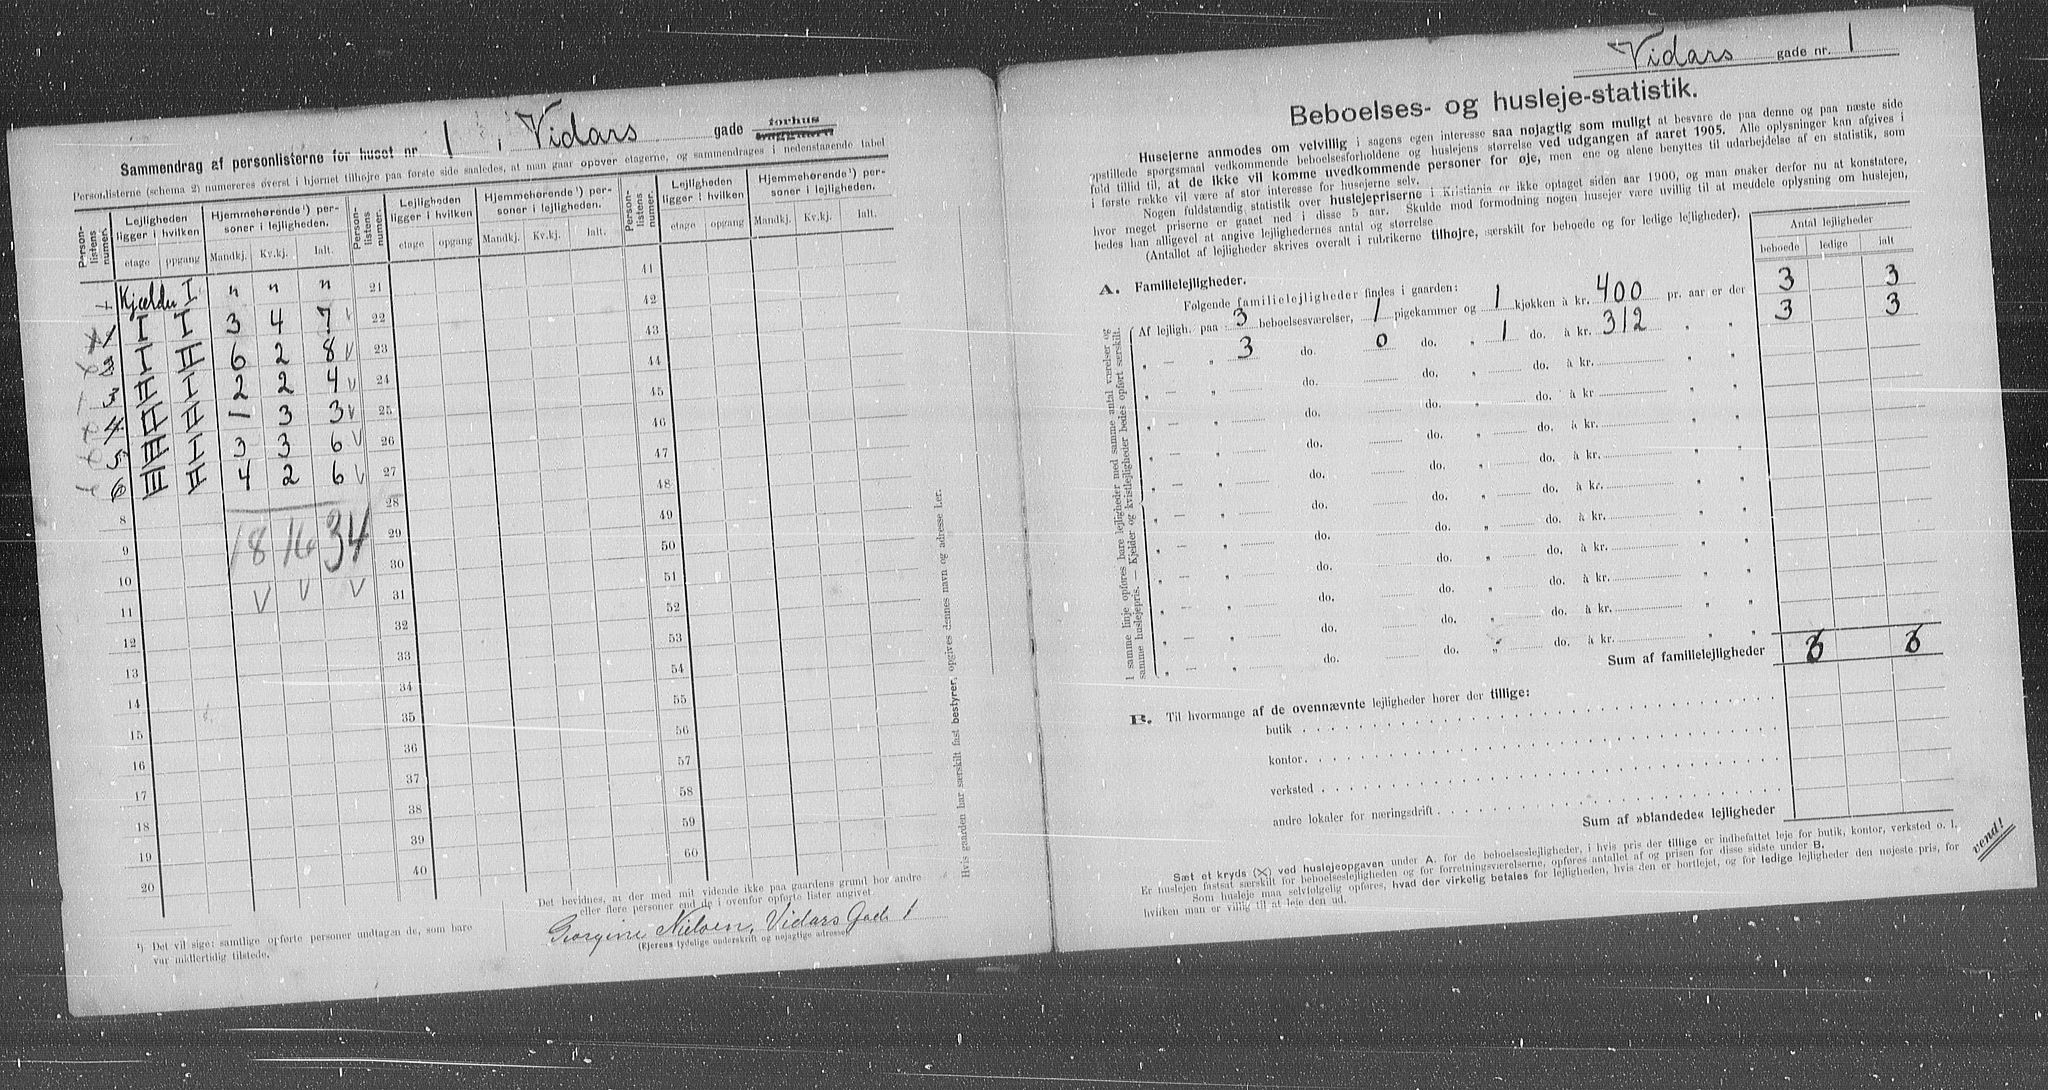 Sammendrag af personlisterne for huset nr. 1 i Vidars gade forhus
Personlisterne (schema 2) numereres øverst i hjørnet tilhøjre paa første side saaledes, at man gaar opover etagerne, og sammendrages i nedenstaaende tabel
Person-listens numer. Lejligheden ligger i hvilken Hjemmehørende¹) personer i lejligheden. Person-listens numer. Lejligheden ligger i hvilken Hjemmehørende¹) personer i lejligheden. Person-listens numer. Lejligheden ligger i hvilken Hjemmehørende¹) personer i lejligheden.
etage opgang Mandkj. Kv.kj. Ialt. etage opgang Mandkj. Kv.kj. Ialt. etage opgang Mandkj. Kv.kj. Ialt.
Kjælder I " " " 21 41
1 I I 3 4 7 v 22 42
2 I II 6 2 8 v 23 43
3 II I 2 2 4 v 24 44
4 II II 1 3 3 v 25 45
5 III I 3 3 6 v 26 46
6 III II 4 2 6 v 27 47
8 28 48
9 18 16 34 29 49
10 30 50
11 v v v 31 51
12 32 52
13 33 53
14 34 54
15 35 55
16 36 56
17 37 57
18 38 58
19 39 59
20 40 60
Hvis gaarden har særskilt fast bestyrer, opgives dennes navn og adresse her.
¹) Det vil sige: samtlige opførte personer undtagen de, som bare
var midlertidig tilstede.
Det bevidnes, at der med mit vidende ikke paa gaardens grund bor andre
eller flere personer end de i ovenfor opførte lister angivet.
Georgine Nielsen, Vidars Gade 1
(Ejerens tydelige underskrift og nøjagtige adresse)
Vidars gade nr. 1
Beboelses- og husleje-statistik.
Husejerne anmodes om velvillig i sagens egen interesse saa nøjagtig som muligt at besvare de paa denne og paa næste side
opstillede spørgsmaal vedkommende beboelsesforholdene og huslejens størrelse ved udgangen af aaret 1905. Alle oplysninger kan afgives i
fuld tillid til, at de ikke vil komme uvedkommende personer for øje, men ene og alene benyttes til udarbejdelse af en statistik, som
i første række vil være af stor interesse for husejerne selv.
Nogen fuldstændig statistik over huslejepriserne i Kristiania er ikke optaget siden aar 1900, og man ønsker derfor nu at konstatere,
hvor meget priserne er gaaet ned i disse 5 aar. Skulde mod formodning nogen husejer være uvillig til at meddele oplysning om huslejen,
bedes han alligevel at angive lejlighedernes antal og størrelse
(Antallet af lejligheder skrives overalt i rubrikerne tilhøjre, særskilt for beboede og for ledige lejligheder).
Antal lejligheder
beboede ledige ialt
A. Familielejligheder.
Følgende familielejligheder findes i gaarden:
Af lejligh. paa 3 beboelsesværelser, 1 pigekammer og 1 kjøkken à kr. 400 pr. aar er der 3 3
" — " 3 do. 0 do. " 1 do. à kr. 312 " " 3 3
" — " do. do. " do. à kr. " "
" — " do. do. " do. à kr " "
" — " do. do. " do. à kr. " "
" — " do. do. " do. à kr. " "
" — " do. do. " do. à kr. " "
" — " do. do. " do. à kr. " "
" — " do. do. " do. à kr. " "
" — " do. do. " do. à kr. " "
" — " do. do. " do. à kr. " "
" — " do. do. " do. à kr. " "
I samme linje opføres bare lejligheder med samme antal værelser og
samme huslejepris. — Kjelder og kvistlejligheder bedes opført særskilt.
Sum af familielejligheder 6 6
B. Til hvormange af de ovennævnte lejligheder hører der tillige:
butik
kontor
verksted
andre lokaler for næringsdrift
Sum af »blandede« lejligheder
Sæt et kryds (X) ved huslejeopgaven under A. for de beboelseslejligheder, i hvis pris der tillige er indbefattet leje for butik, kontor, verksted o. l.
Er huslejen fastsat særskilt for beboelseslejligheden og for forretningsværelserne, opføres antallet af og prisen for disse sidste under B.
Som husleje maa selvfølgelig opføres, hvad der virkelig betales for lejligheden, hvis den er bortlejet, og for ledige lejligheder den nøjeste pris, for
hvilken man er villig til at leje den ud.
vend!